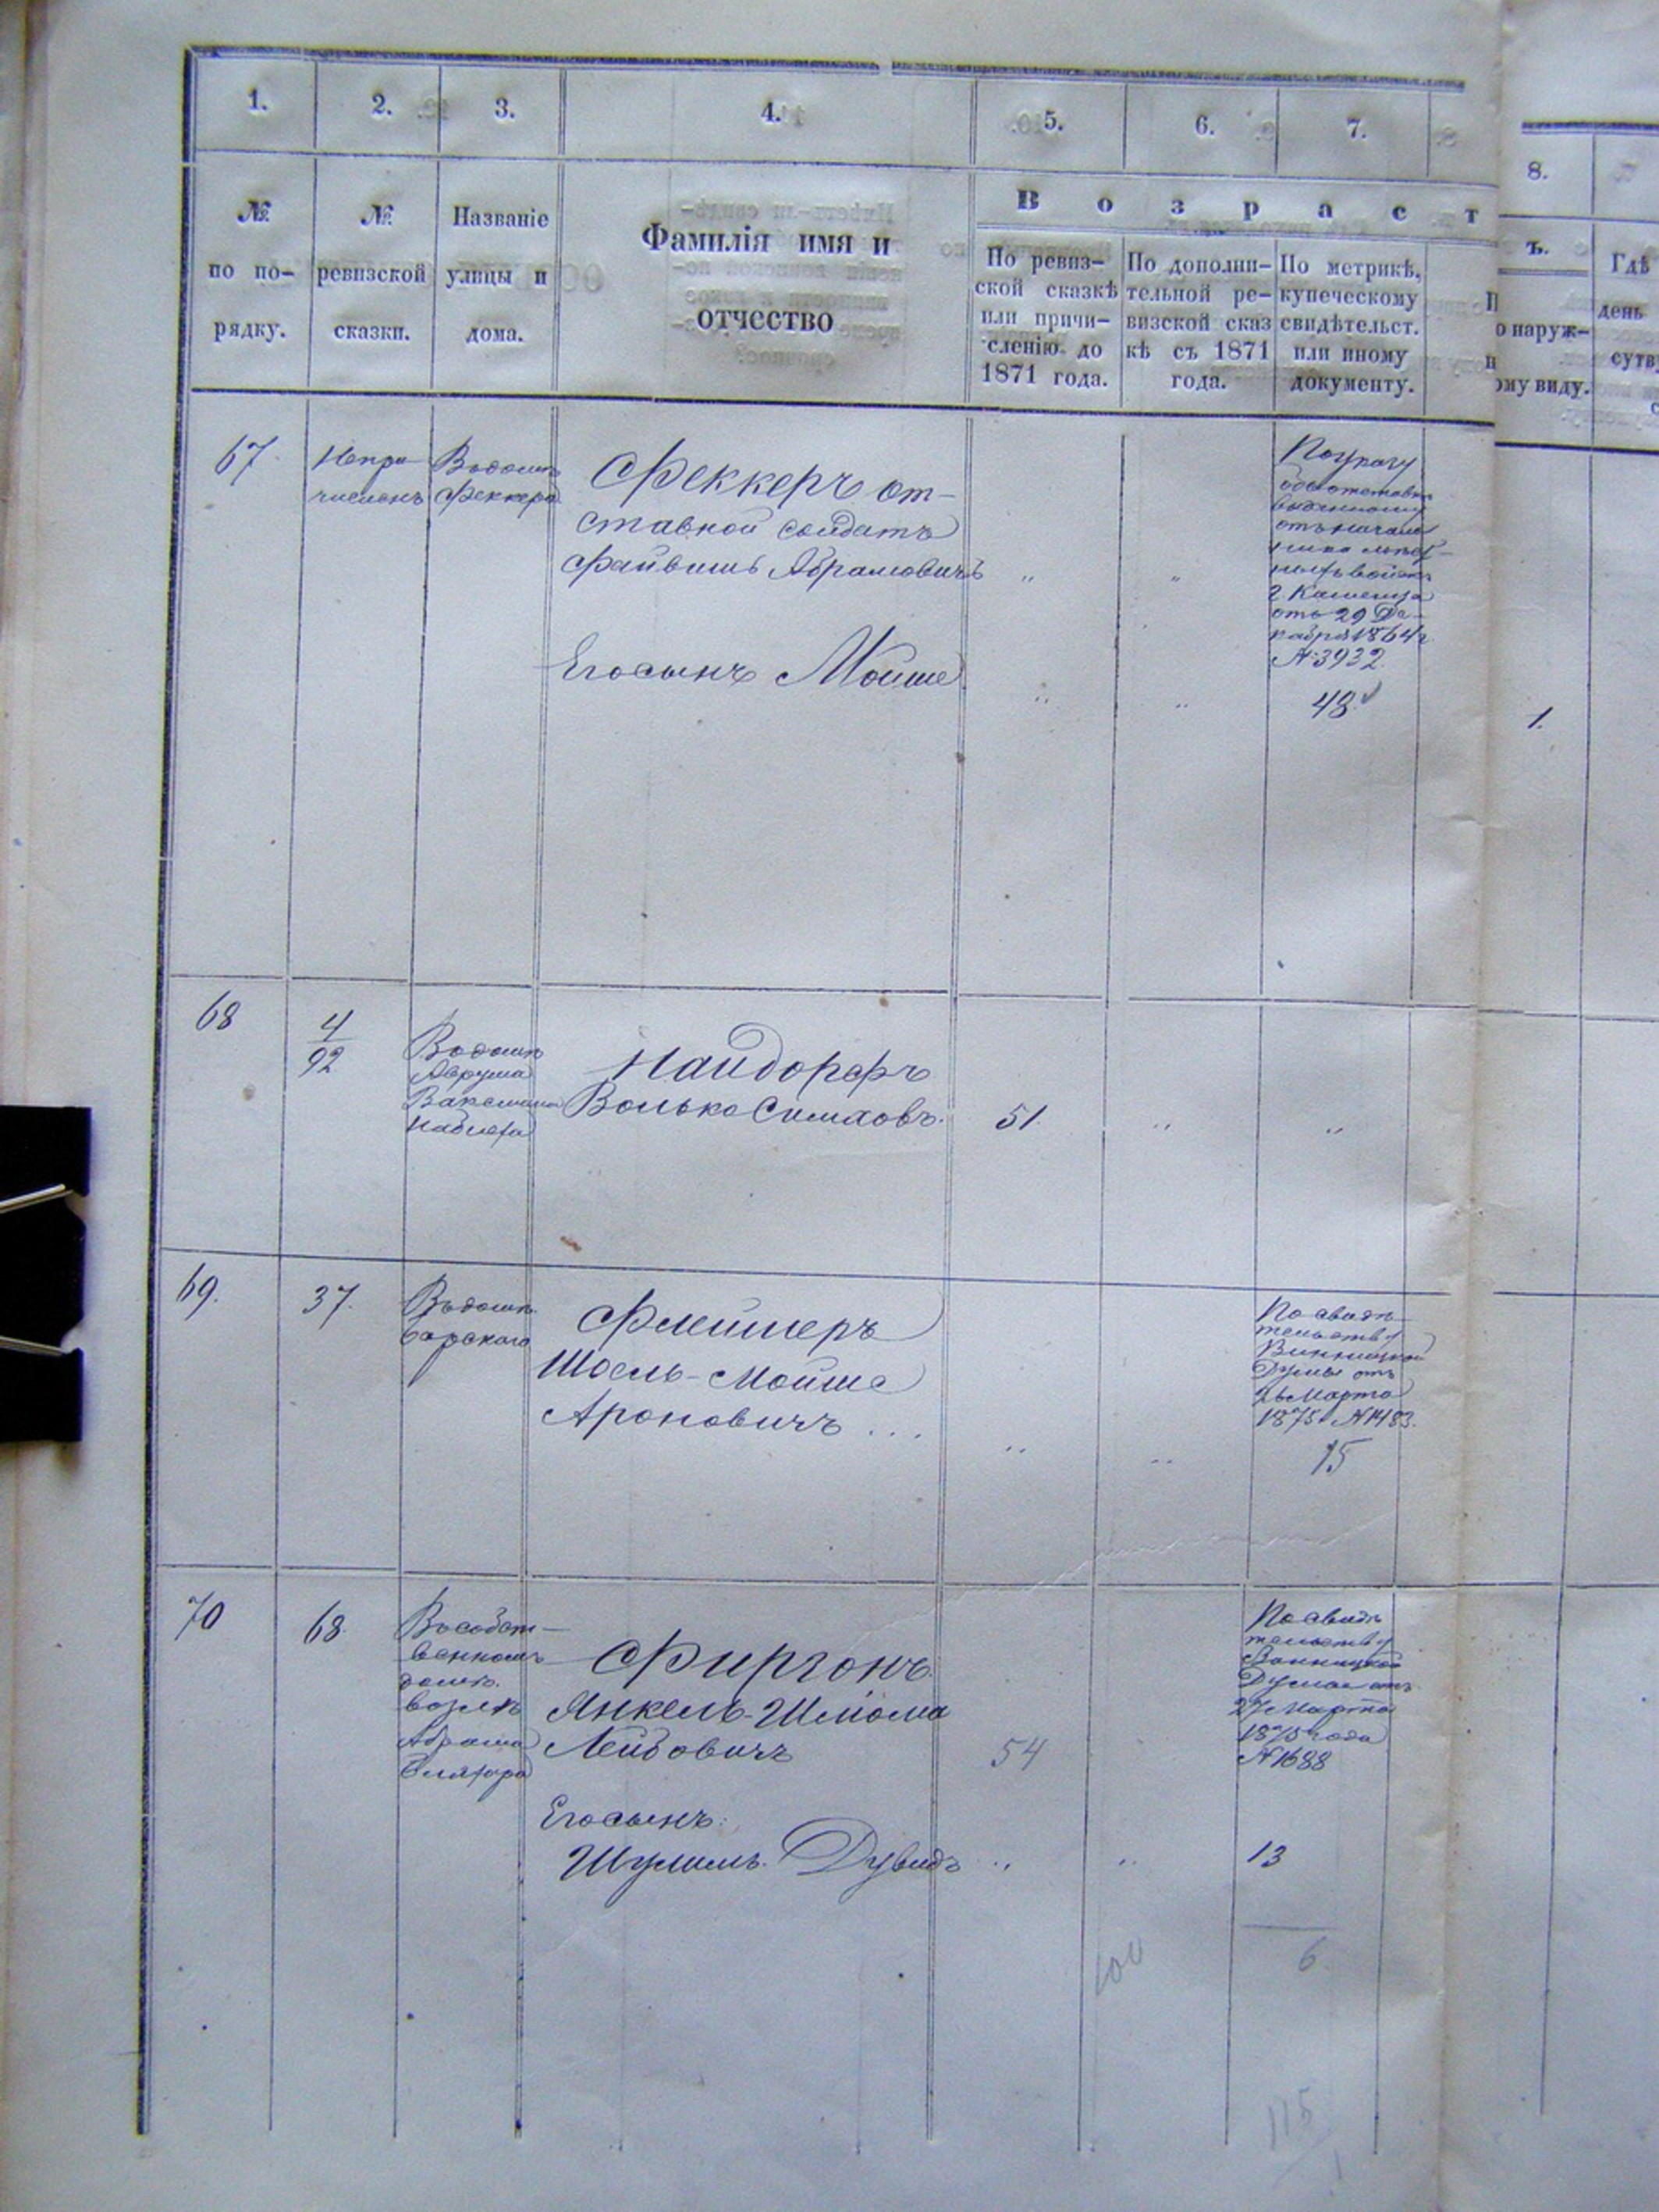 1. 2. 3. 4. 5. 6. 7. 8.
№ по по- рядку.
№ ревизской сказки.
Названіе улицы и дома.
Фамилія имя и
отчество
Возраст
ъ.
По ревиз-
ской сказкѣ
или причи-
сленію до
1871 года.
По дополни-
тельной ре-
визской сказ
кѣ съ 1871
года.
По метрикѣ,
купеческому
свидѣтельст.
или иному
документу.
о наруж-
ому виду.
Гдѣ
день
сутв
67
Непри-
численъ
Въ домѣ
Феккера
Феккеръ от-
ставной солдатъ
Файвишъ Абрамовичъ
" "
По указу
объ отставкѣ
выданному
отъ
г. Каменца
отъ 29 Де-
кабря 1864 г.
№ 3932
Его сынъ Мойше
" "
48
1.
68
4
92
Въ домѣ
Аврума
Ваксмана
Найдорфъ
Волько Симховъ.
51.
" "
69.
37.
Въ домѣ
Барскаго
Флейшеръ
Шоель-Мойше
Ароновичъ ...
" "
По свидѣ-
тельству
Винницкой
Думы отъ
26 Марта
1875 № 1483.
15
70
68.
Въ собст-
венномъ
домѣ
возлѣ
Абрама
Фиргонъ
Янкель-Шлiома
Лейбовичъ
54
По свидѣ-
тельству
Винницкой
Думы отъ
27 Марта
1875 года
№ 1688
Его сынъ:
Шулимъ-Дувидъ
" "
13
100
6
115